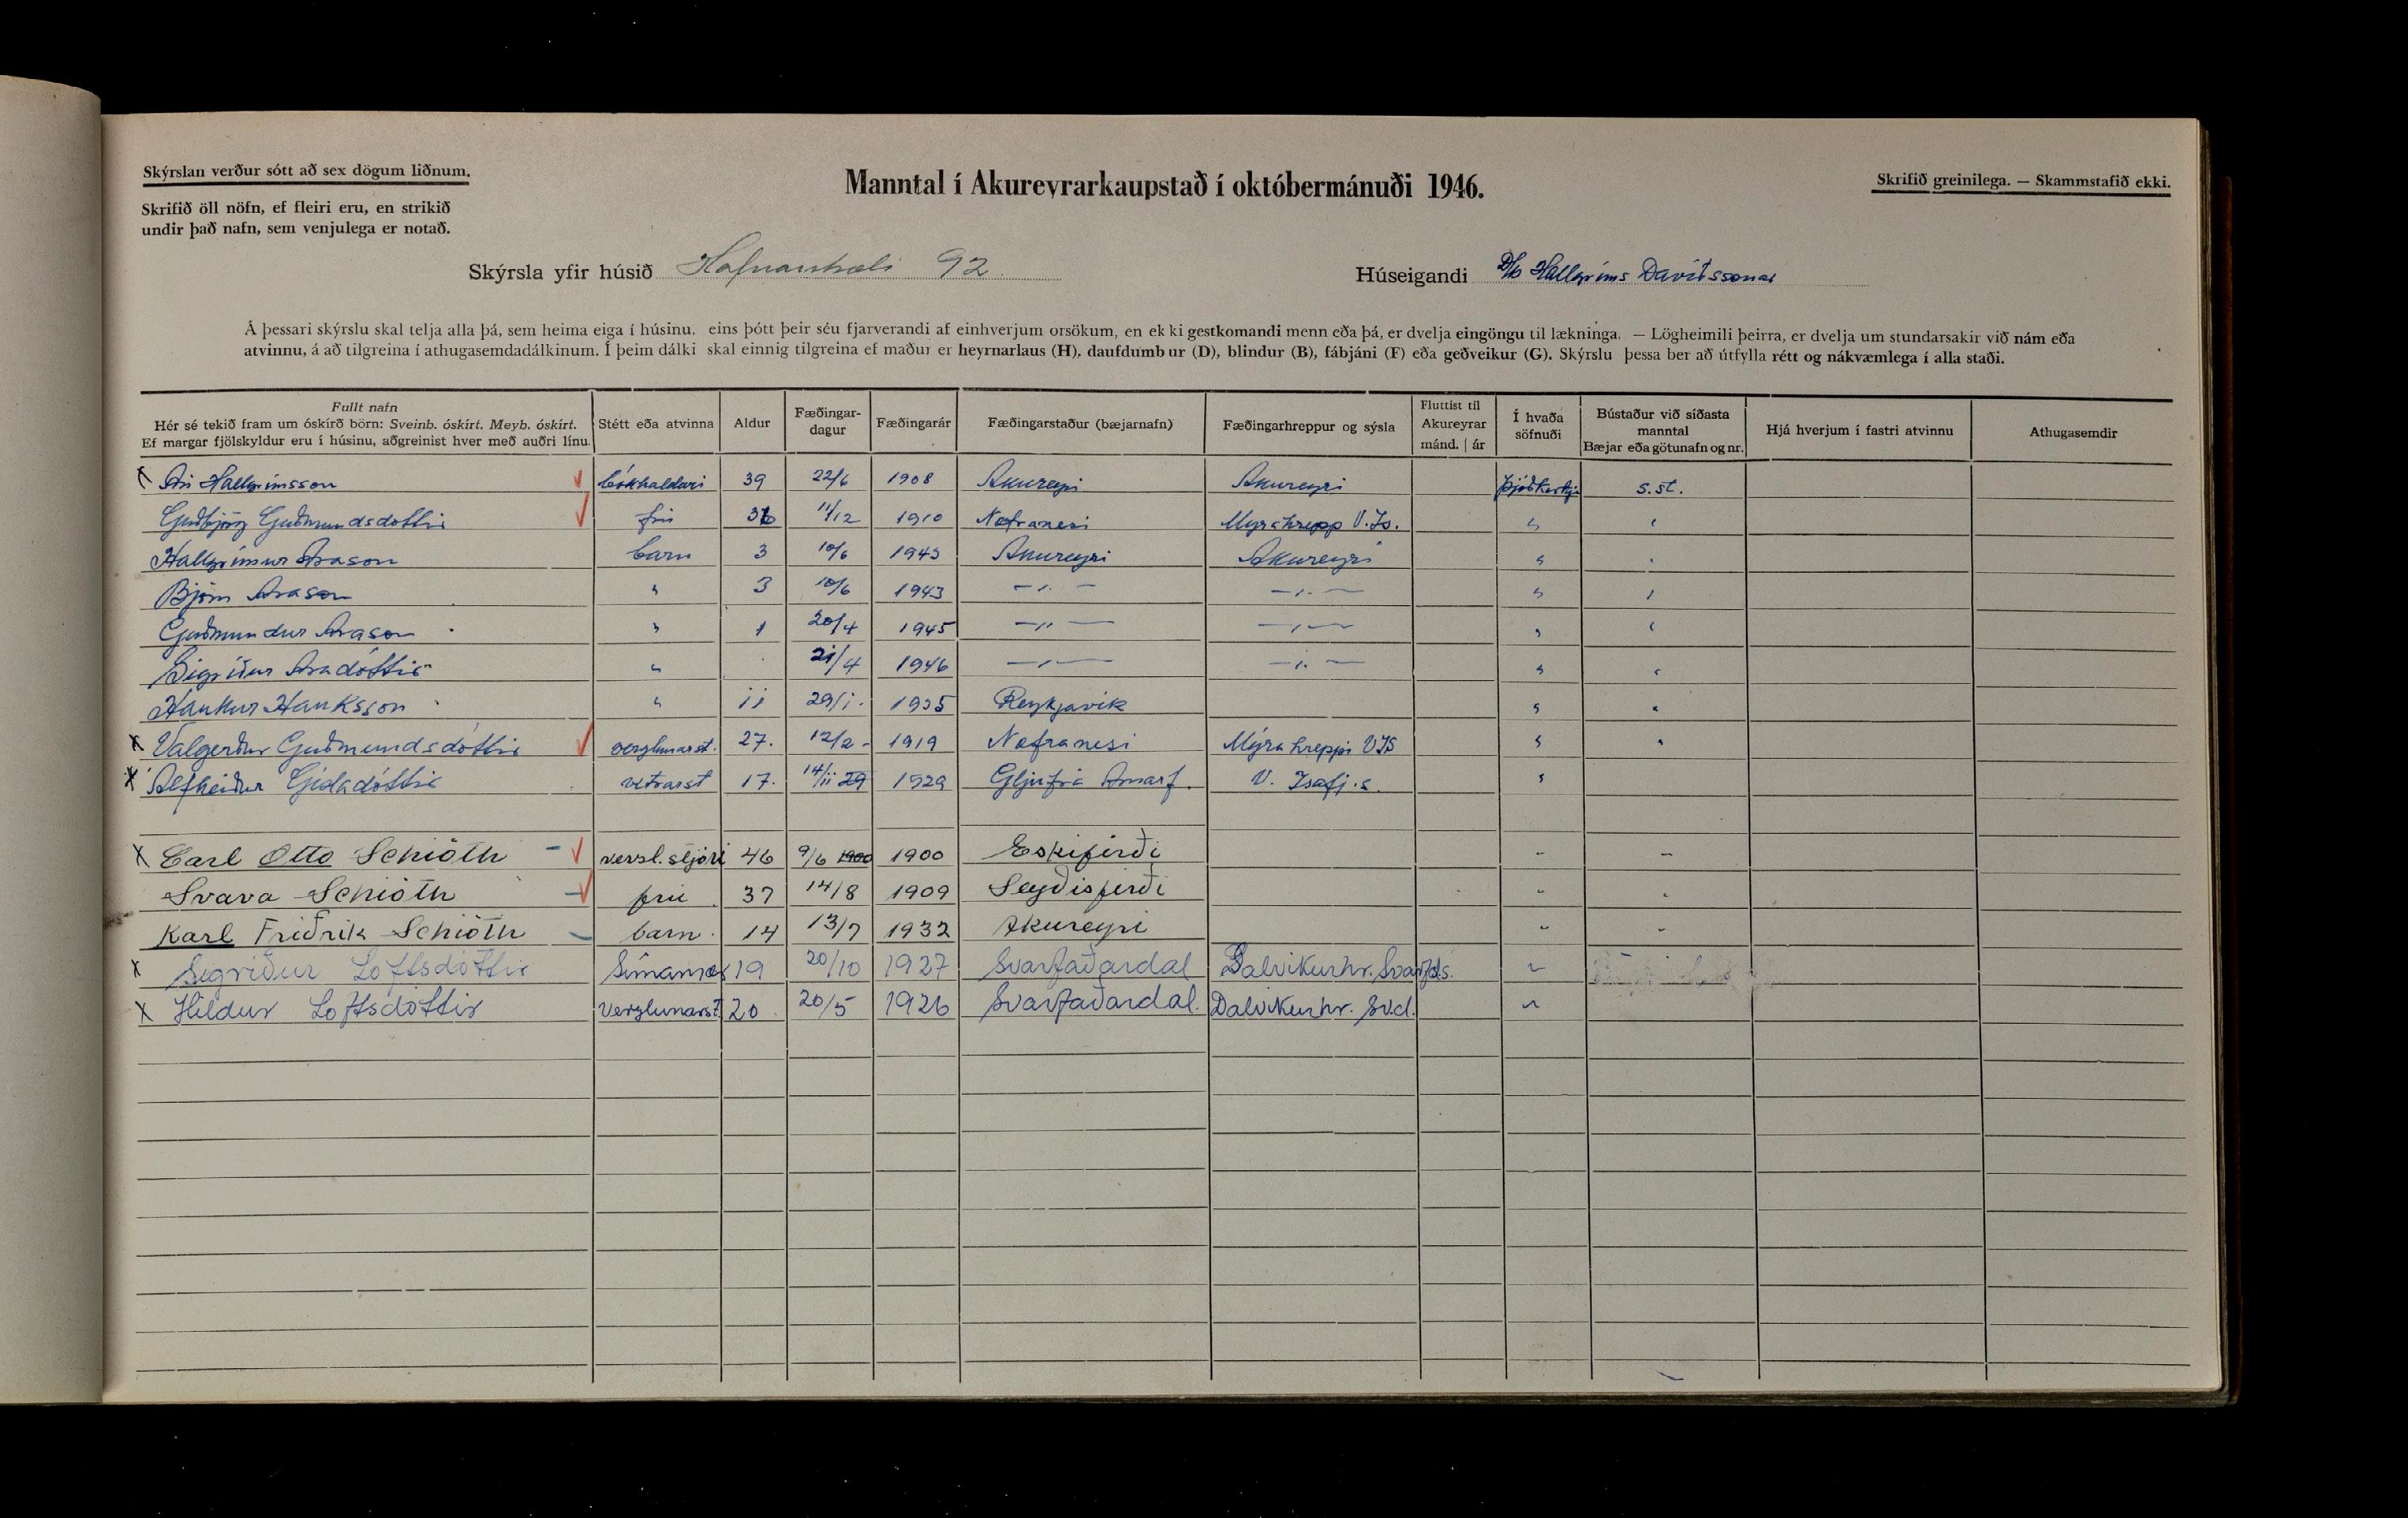 Skýrslan verður sótt að sex dögum liðnum.
Skrifið öll nöfn, ef fleiri eru, en strikið
undir það nafn, sem venjulega er notað.
Manntal í Akureyrarkaupstað í októbermánuði 1946.
Skrifið greinilega. — Skammstafið ekki.
Skýrsla yfir húsið Hafnarstræti 92
Húseigandi D/b Hallgríms Davíðssonar
Á þessari skýrslu skal telja alla þá, sem heima eiga í húsinu, eins þótt þeir séu fjarverandi af einhverjum orsökum, en ekki gestkomandi menn eða þá, er dvelja eingöngu til lækninga. — Lögheimili þeirra, er dvelja um stundarsakir við nám eða
atvinnu, á að tilgreina í athugasemdadálkinum. Í þeim dálki skal einnig tilgreina ef maður er heyrnarlaus (H), daufdumbur (D), blindur (B), fábjáni (F) eða geðveikur (G). Skýrslu þessa ber að útfylla rétt og nákvæmlega í alla staði.
Fullt nafn
Hér sé tekið fram um óskírð börn: Sveinb. óskírt. Meyb. óskírt.
Ef margar fjölskyldur eru í húsinu, aðgreinist hver með auðri línu.
Stétt eða atvinna
Aldur
Fæðingar-
dagur
Fæðingarár
Fæðingarstaður (bæjarnafn)
Fæðingarhreppur og sýsla
Fluttist til
Akureyrar
mánd. | ár
Í hvaða
söfnuði
Bústaður við síðasta
manntal
Bæjar eða götunafn og nr.
Hjá hverjum í fastri atvinnu
Athugasemdir
x Ari Hallgrímsson √ bókhaldari 39 22/6 1908 Akureyri Akureyri Þjóðkirkj. s.st.
Guðbjörg Guðmundsdóttir √ frú 36 11/12 1910 Næfranesi Mýrahrepp V.Ís. " "
Hallgrímur Arason barn 3 10/6 1943 Akureyri Akureyri " "
Björn Arason " 3 10/6 1943 — " — — " — " "
Guðmundur Arason " 1 20/4 1945 — " — — " — " "
Sigríður Aradóttir " 21/4 1946 — " — — " — " "
Haukur Hauksson " 11 29/1. 1935 Reykjavík " "
x Valgerður Guðmundsdóttir √ verzlunarst. 27. 12/2 - 1919 Næfranesi Mýrahreppi VÍS " "
x Alfheiður Gísladóttir vetrarst 17. 14/11 29 1929 Gljúfrá Arnarf. V. Ísafj.s. "
x Carl Otto Schiöth - √ versl.stjóri 46 9/6 1900 1900 Eskifirði " "
Svava Schiöth - √ frú 37 14/8 1909 Seyðisfirði " "
Karl Friðrik Schiöth - barn 14 13/7 1932 Akureyri " "
x Sigríður Loftsdóttir Símamær 19 20/10 1927 Svarfaðardal Dalvíkurhr. Svarfds. "
x Hildur Loftsdóttir Verzlunarst. 20 20/5 1926 Svarfaðardal. Dalvíkurhr. Sv.d. "